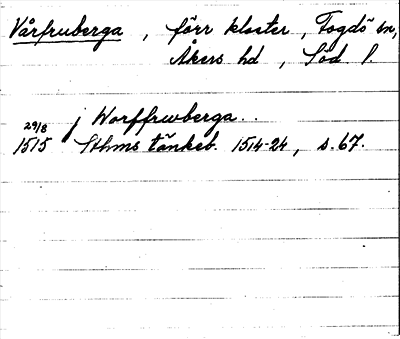 Vårfruberga, förr kloster, Fogdö sn,
Åkers hd, Söd l.
29/8 j Worffrwberga..
1515 Sthms tänkeb. 1514-24, s. 67.